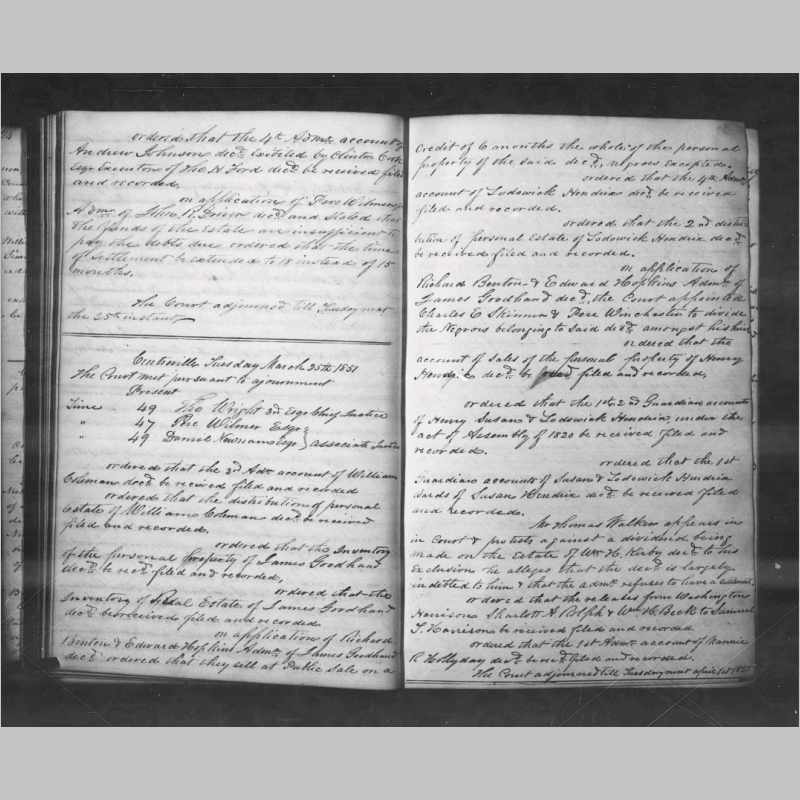 ordered that the 4th Admr account of
Andrew Johnson decd exhibited by Clinton Cook
Esqr Executor of Tho. H. Ford decd be received filed
and recorded.
on application of Pere Wilmer
Admr of decd and stated that
the funds of the Estate are insufficient to
pay the debts due ordered that the time
of Settlement be extended to 18 instead of 15
months.
The Court adjourned till Tuesday next
the 25th instant
Centreville Tuesday March 25th 1851
The Court met pursuant to ajournment
Present
Time 49 Tho Wright 3d Esqr Chief Justice
" 47 Pere Wilmer Esqr
" 49 Daniel Newnam Esqr } associate Justices
ordered that the 3rd Adm account of William
Coleman decd be received filed and recorded
ordered that the distribution of personal
Estate of William Coleman decd be received
filed and recorded.
ordered that the Inventory
of the personal property of James Goodhand
decd be recd filed and recorded,
ordered that the
Inventory of Real Estate of James Goodhand
decd be received filed and recorded
on application of Richard
Benton & Edward Hopkins Admr of James Goodhand
decd ordered that they sell at Public Sale on a
Credit of 6 months the whole of the personal
property of the said decd, negroes excepted.
ordered that the 4th Admr
account of Lodowick Hendrix decd be received
filed and recorded.
ordered that the 2nd distri-
bution of personal Estate of Lodowick Hendrix decd
be received filed and recorded.
on application of
Richard Benton & Edward Hopkins Admr of
James Goodhand decd, the Court appointed
Charles C Skinner & Pere Winchester to divide
the Negroes belonging to Said decd amongst his heirs
ordered that the
account of sales of the personal property of Henry
Hendrix decd be recd filed and recorded,
ordered that the 1st & 2nd Guardian accounts
of Henry Susan & Lodowick Hendrix, under the
act of Assembly of 1820 be received filed and
recorded.
ordered that the 1st
Guardian accounts of Susan & Lodowick Hendrix
wards of Susan Hendrix decd be received filed
and recorded.
Mr Thomas Walker appears in
in Court & protests against a dividend being
made on the Estate of Wm H. Kirby decd to his
exclusion he alleges that the decd is largely
indebted to him & that the admr refuses to have a
ordered that the releases from Washington
Harrison Sharlott A. Rolph & Wm H. Beck to Samuel
T. Harrison be received filed and recorded
ordered that the 1st Admr account of Nannie
R Hollyday decd be recd filed and recorded.
The Court adjourned till Tuesday next april 1st 1851